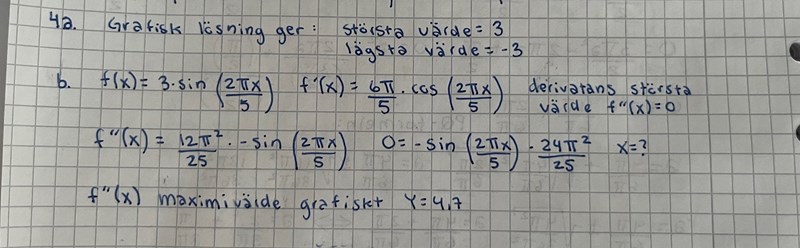 4a. Grafisk lösning ger: största värde = 3
lägsta värde = -3
b. f(x) = 3·sin (2πx/5) f'(x) = 6π/5 · cos (2πx/5) derivatans största
värde f''(x)=0
f''(x) = 12π²/25 · -sin (2πx/5) 0 = -sin (2πx/5) · 24π²/25 x=?
f''(x) maximivärde grafiskt Y = 4,7